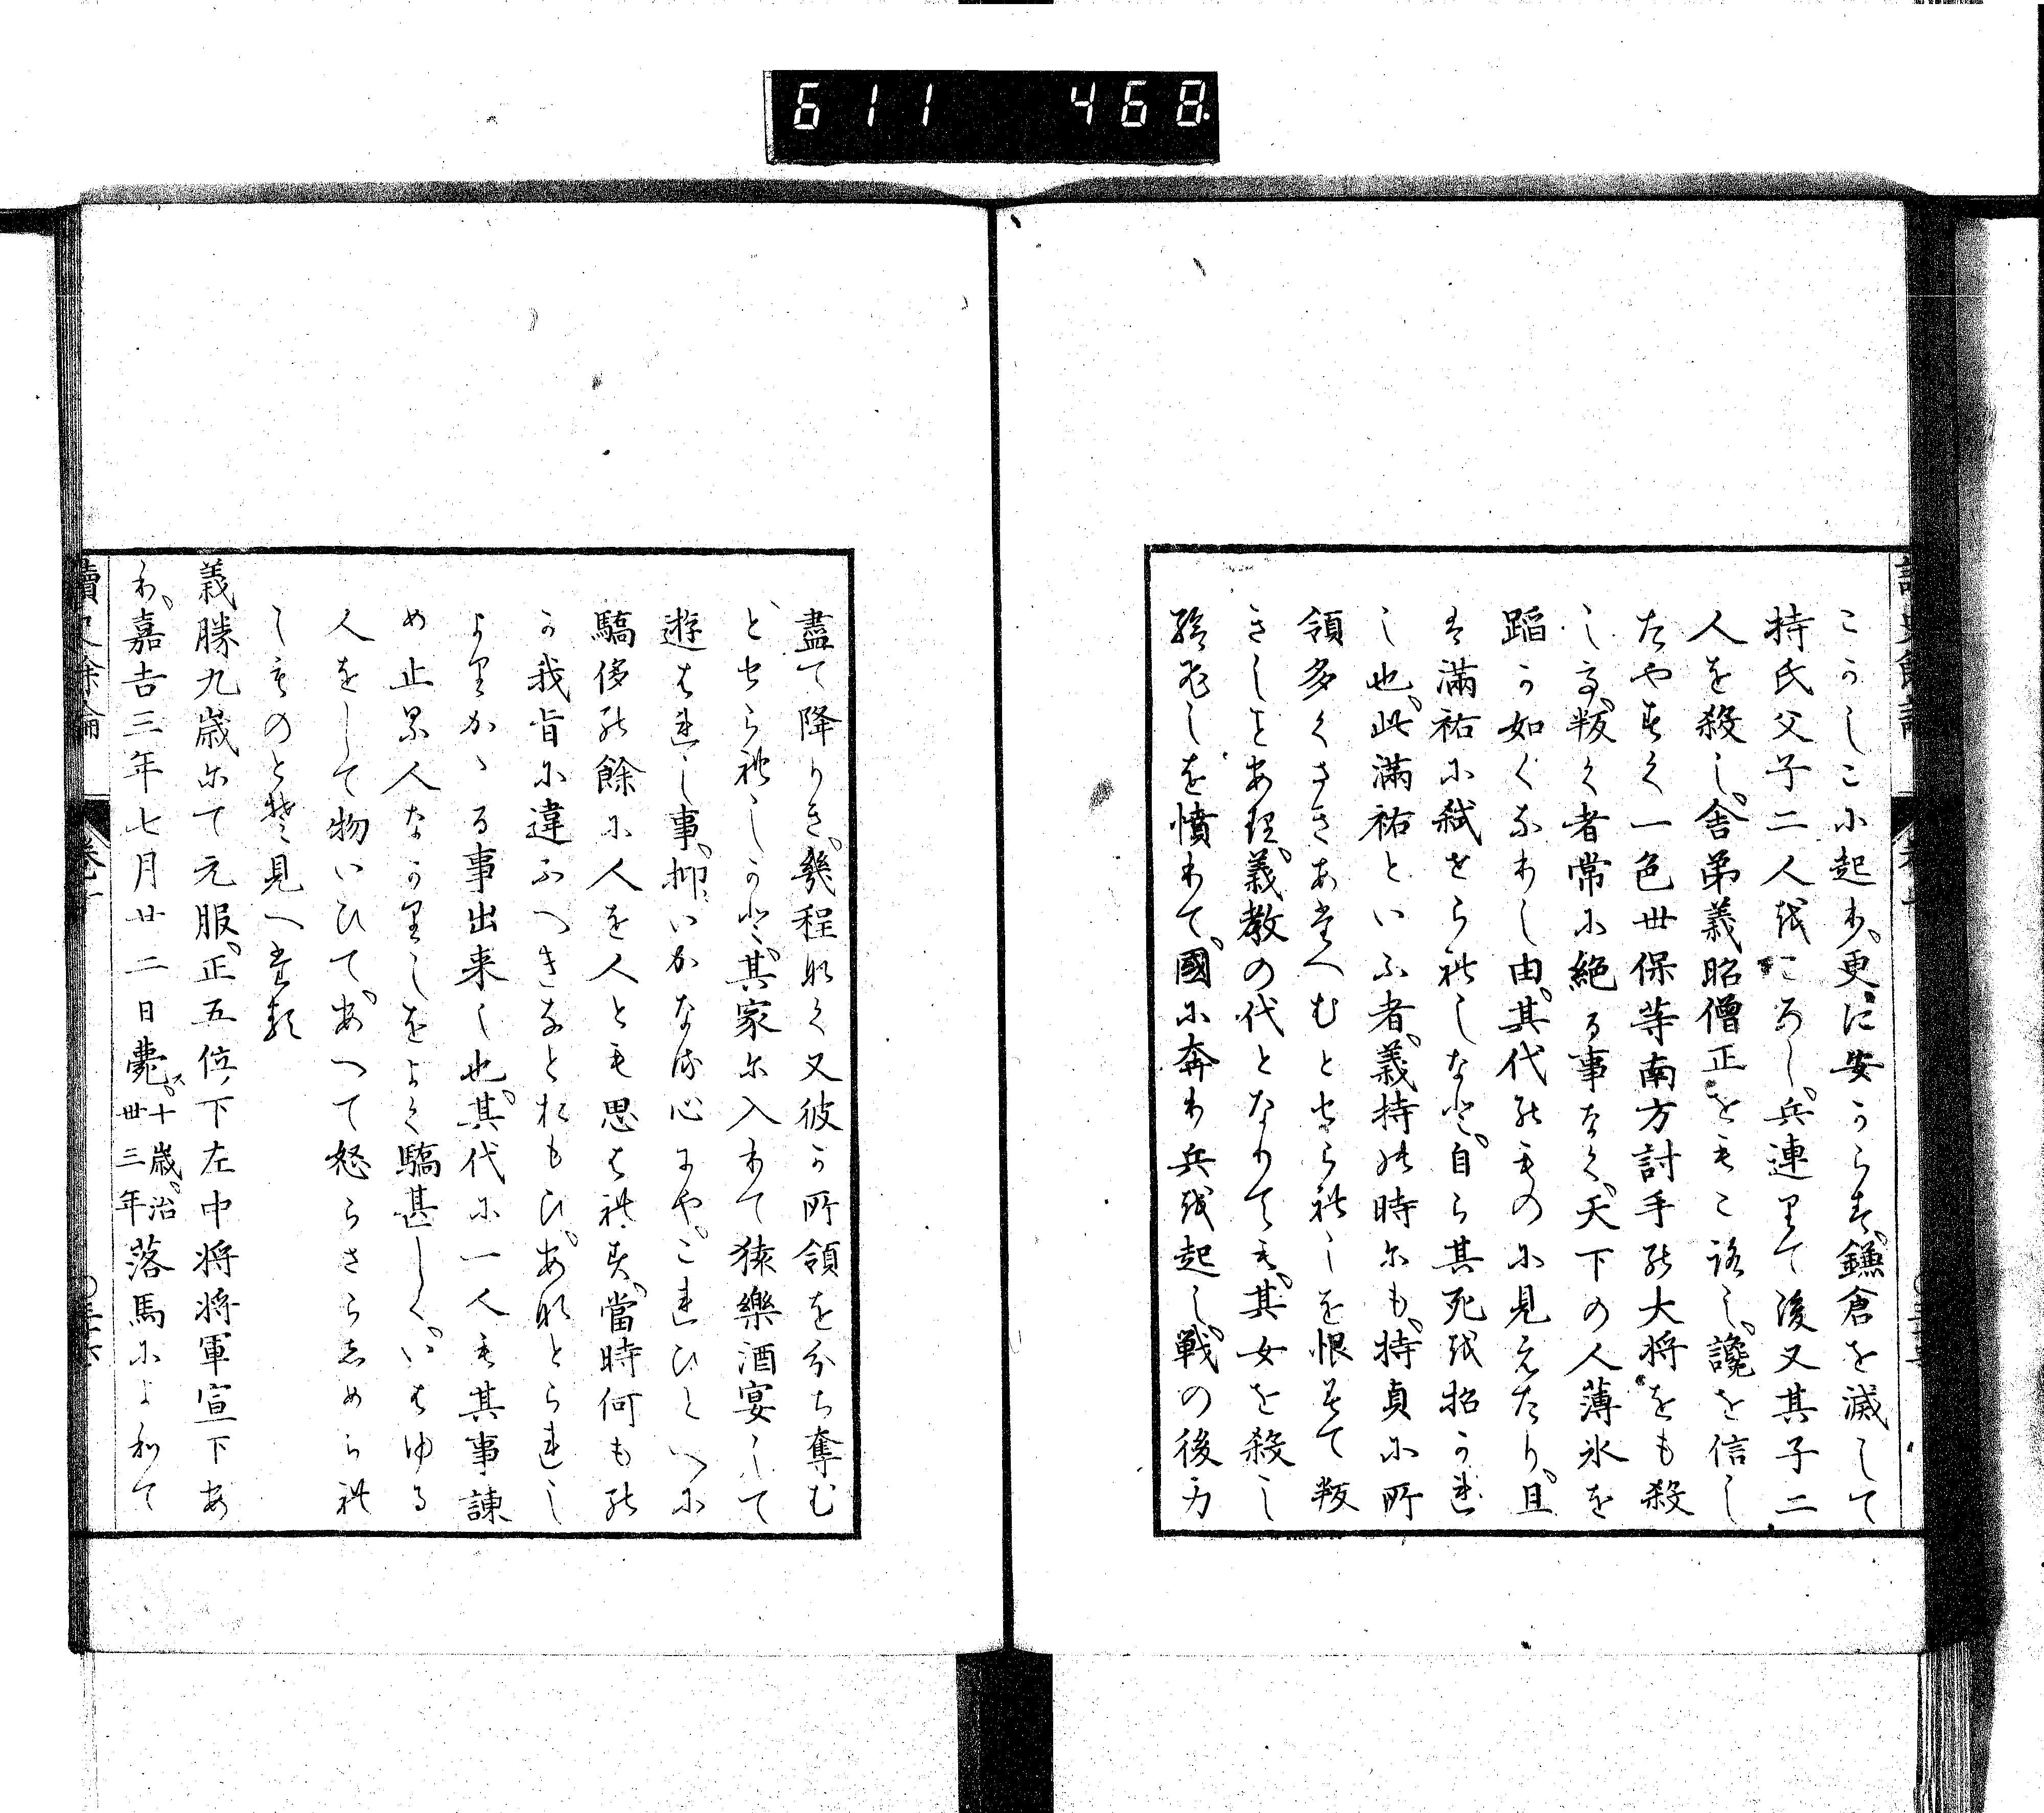 611 468
こゝかしこに起り、更に安からす、鎌倉を滅して
持氏父子二人をころし、兵連りて後又其子二
人を殺し、舎弟義昭僧正をもころし、讒を信し
たやすく一色世保等南方討手の大将をも殺
し、叛く者常に絶る事なく、天下の人薄氷を
蹈か如くなりし由、其代のものに見えたり、且
は満祐に弑せられしなと、自ら其死を招かれ
し也、此満祐といふ者、義持の時にも、持貞に所
領多くさきあたへむとせられしを恨みて叛
きしとあり、義教の代となりても、其女を殺し
給ひしを憤りて、國に奔り兵を起し、戦の後力
盡て降りき、幾程なく又彼か所領を分ち奪む
とせられしかと、其家に入りて猿樂酒宴して
遊はれし事、抑いかなる心にや、これひとへに
驕侈の餘に人を人とも思はれす、當時何もの
か我旨に違ふへきなとおもひ、あなとられし
よりかゝる事出来し也、其代に一人も其事諫
め止る人なかりしをよく驕甚しく、いはゆる
人をして物いひて、あへて怒らさらしめられ
しものとそ見へたる
義勝九歳にて元服、正五位下左中将将軍宣下あ
り、嘉吉三年七月廿二日薨す、十歳、治世三年落馬によりて
讀史餘論 巻十